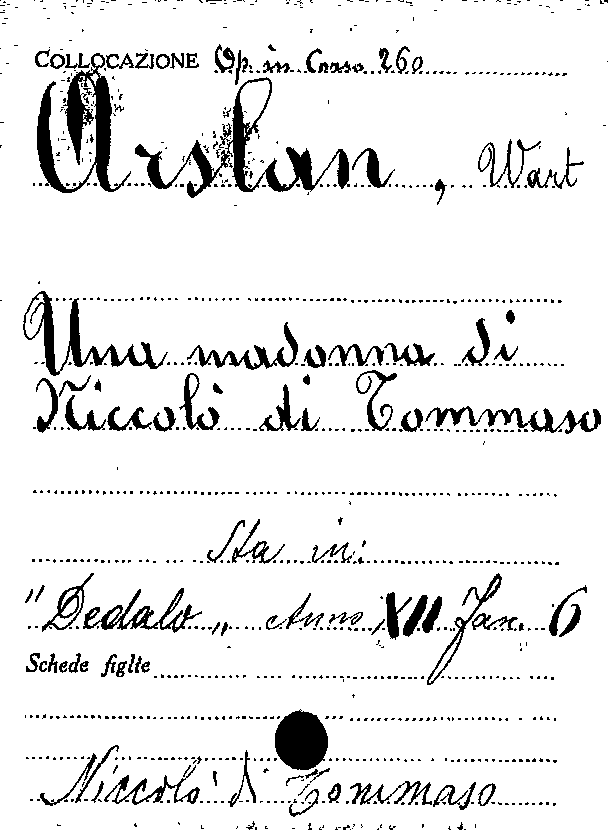 COLLOCAZIONE Op. in Corso 260
Arslan, Wart
Una madonna di
Niccolò di Tommaso
Sta in:
"Dedalo„ Anno XII Fax. 6
Schede figlie
Niccolò di Tommaso